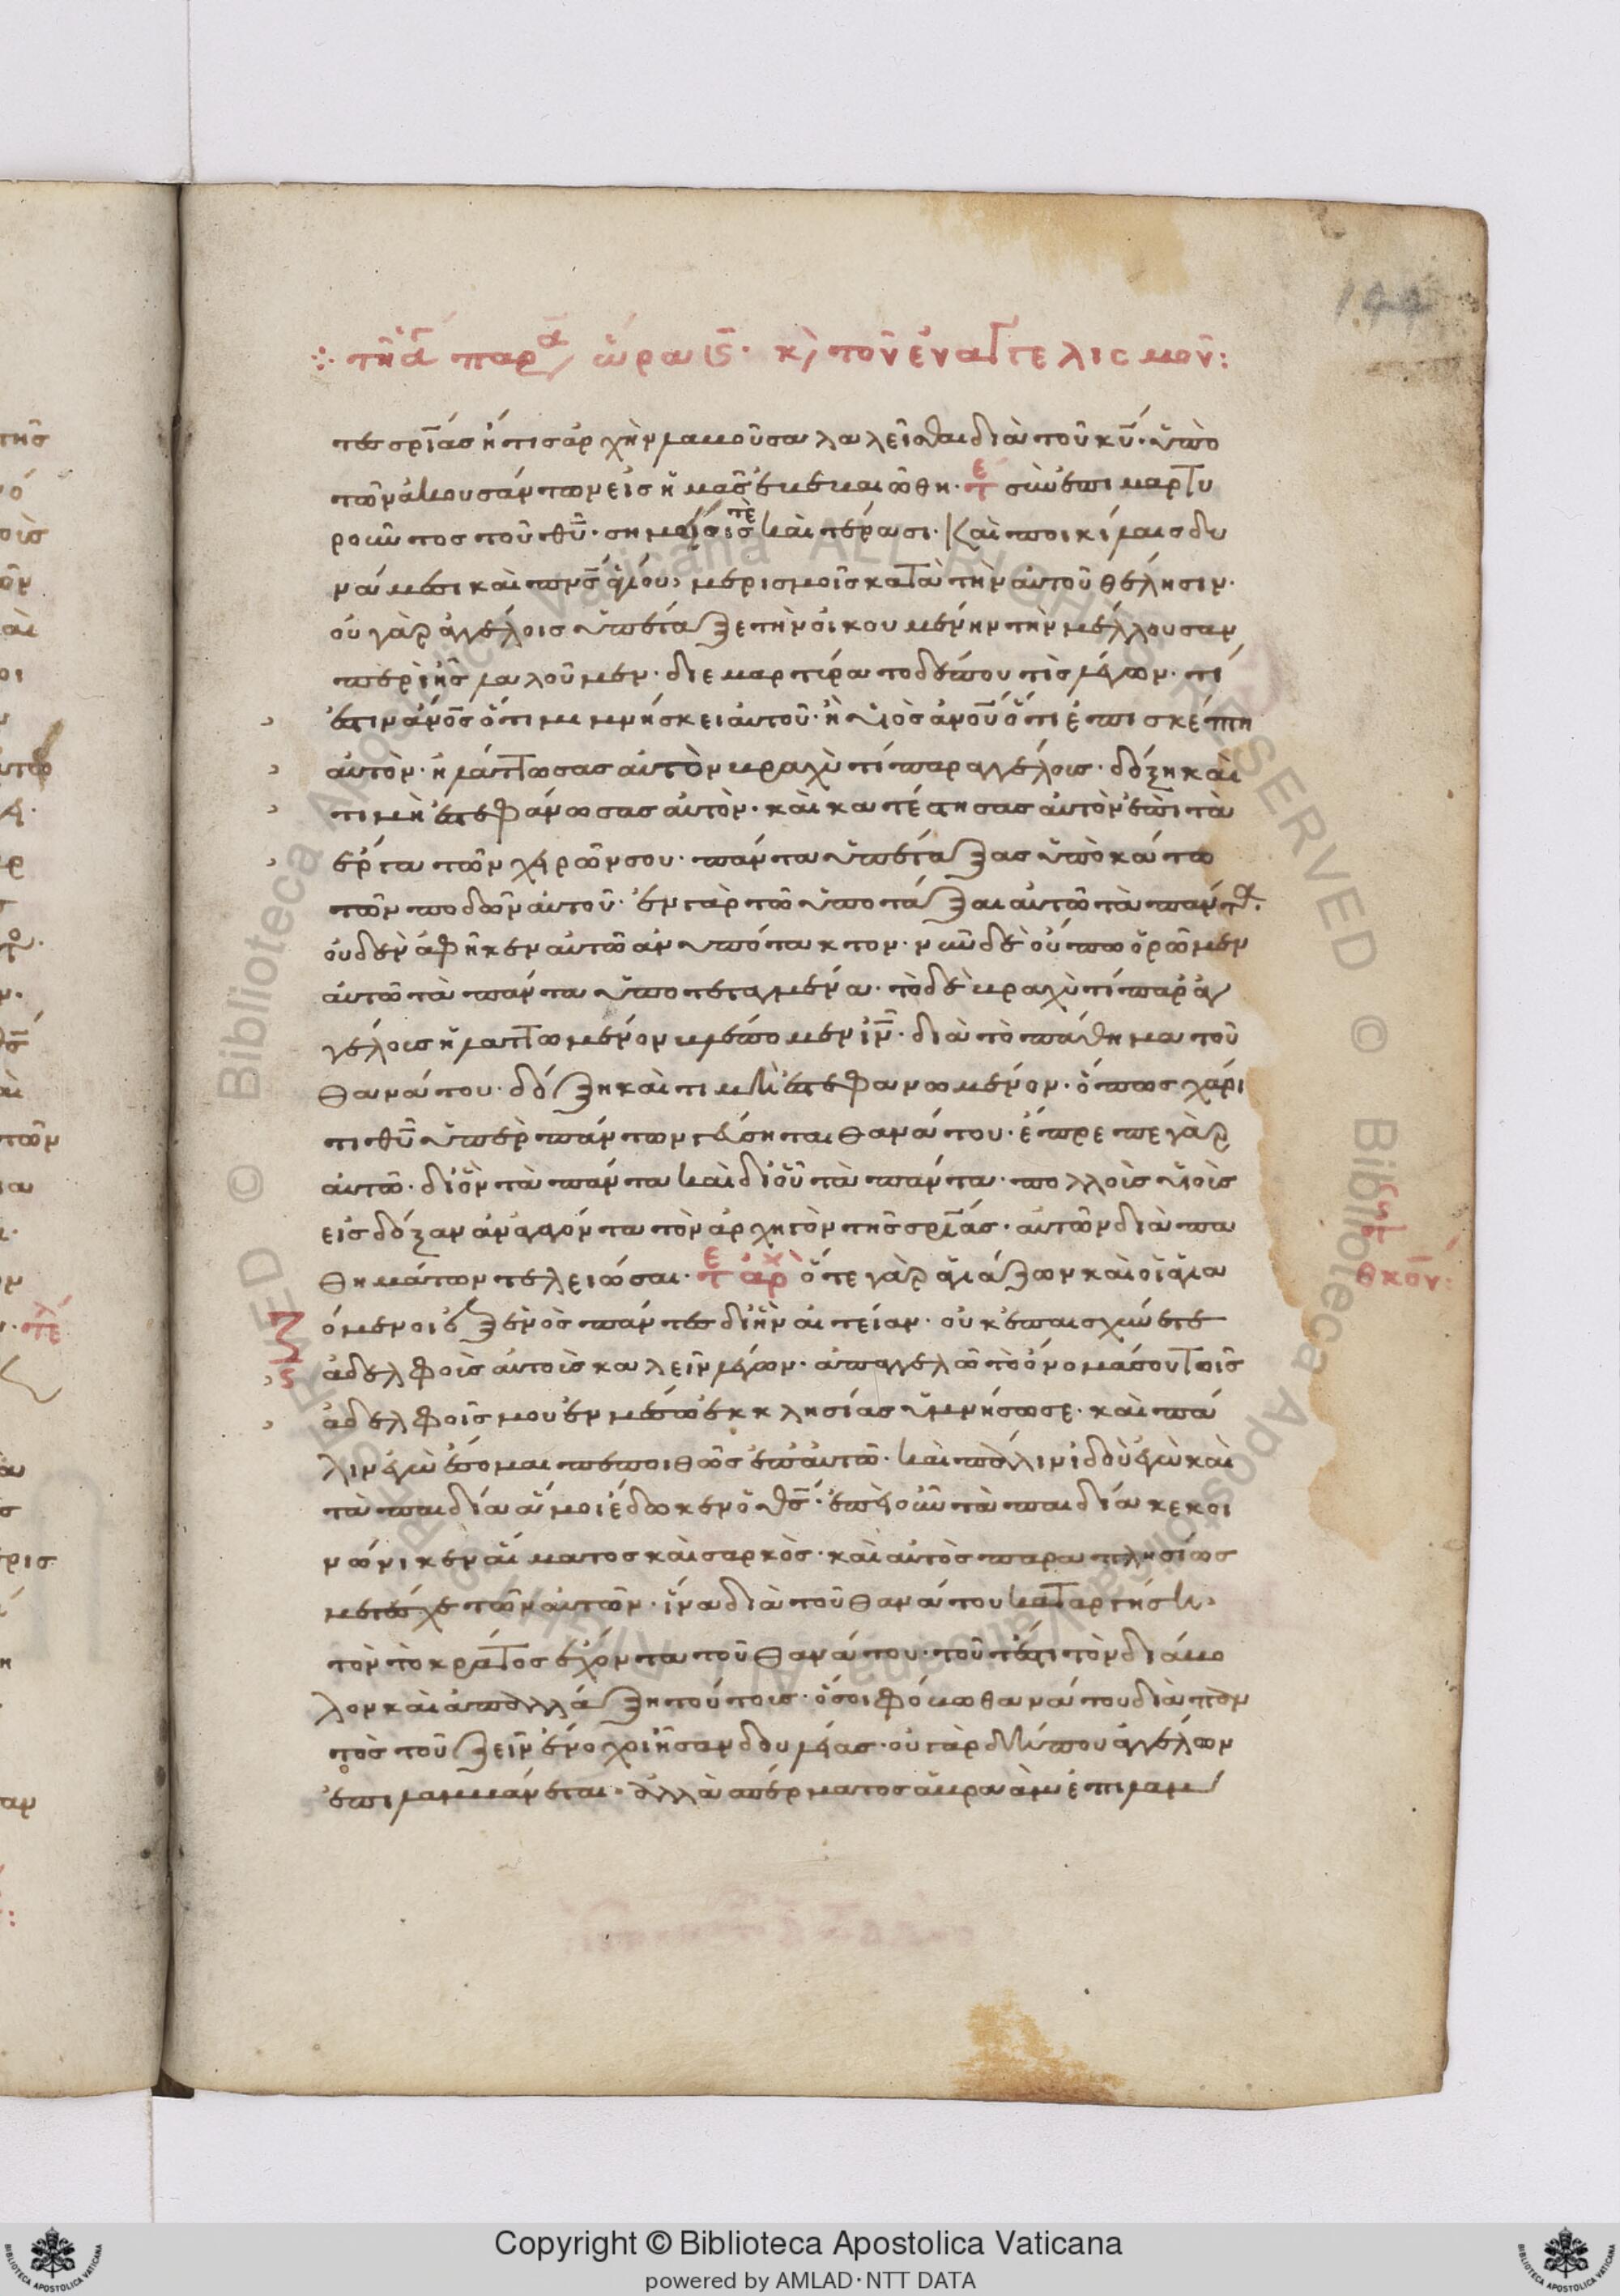 144
τῆ ἁγ παρα ὥρα ιϛ. κ, τοῦ εὐαγγελισμοῦ:
τες σρίας ἥτις ἀρχὴν λαβοῦσα λαλεῖσθαι διὰ τοῦ κυ. ὑπὸ
τῶν ἀκουσάντων εἰς ἡμᾶς ἐβεβαιώθη. τε συνεπιμαρτυ
ροῦντος τοῦ θυ. σημείοις τὲ καὶ τέρασι. καὶ ποικίλαις δυ
νάμεσι καὶ πνς ἁγίου, μερισμοῖς κατὰ τὴν αὐτοῦ θέλησιν.
οὐ γὰρ ἀγγέλοις ὑπέταξε τὴν οἰκουμένην τὴν μέλλουσαν
περὶ ἧς λαλοῦμεν. διεμαρτύρατο δέ που τὶς λέγων. τί
ἐστιν ἀνος ὅτι μιμνήσκει αὐτοῦ. ἢ υἱὸς ἀνου ὅτι ἐπισκέπτη
αὐτόν. ἠλάττωσας αὐτὸν βραχὺ τί παρ ἀγγέλοις. δόξη καὶ
τιμὴ ἐστεφάνωσας αὐτὸν. καὶ κατέστησας αὐτὸν ἐπὶ τὰ
ἔργα τῶν χειρῶν σου. πάντα ὑπέταξας ὑποκάτω
τῶν ποδῶν αὐτοῦ. ἐν γὰρ τῶ ὑποτάξαι αὐτῶ τὰ πάντα.
οὐδὲν ἀφῆκεν αὐτῶ ἀνυπότακτον. νῦν δὲ οὔπω ὁρῶμεν
αὐτῶ τὰ πάντα ὑποτεταγμένα. τὸ δὲ βραχὺ τί παρ ἀγ
γέλοις ἠλαττωμένον βλέπομεν ιν. διὰ τὸ πάθημα τοῦ
θανάτου. δόξη καὶ τιμὴ ἐστεφανωμένον. ὅπως χάρι
τι θυ ὑπὲρ πάντων γεύσηται θανάτου. ἔπρεπε γὰρ
αὐτῶ. δι ὃν τὰ πάντα καὶ δι οὗ τὰ πάντα. πολλοὺς υἱοὺς
εἰς δόξαν ἀγαγόντα τὸν ἀρχηγὸν τῆς σρίας. αὐτῶν διὰ πα
θημάτων τελειῶσαι. τε ἀρχ ὅτε γὰρ ἁγιάζων καὶ οἱ ἁγια
όμενοι ἐξ ἑνὸς πάντες δι ἣν αἰτείαν. οὐκ ἐπαισχύνετε
ἀδελφοὺς αὐτοὺς καλεῖν λέγων. ἀπαγγελῶ τὸ ὄνομά σου τοῖς
ἀδελφοῖς μου ἐν μέσω ἐκκλησίας ὑμνήσω σε. καὶ πά
λιν ἐγὼ ἔσομαι πεποιθὼς ἐπ αὐτῶ. καὶ πάλιν ἰδοὺ ἐγὼ καὶ
τὰ παιδία ἅ μοι ἔδωκεν ὁ θς. ἐπεὶ οὖν τὰ παιδία κεκοι
νώνικεν αἵματος καὶ σαρκὸς. καὶ αὐτὸς παραπλησίως
μετέσχε τῶν αὐτῶν. ἵνα διὰ τοῦ θανάτου καταργήση
τὸν τὸ κράτος ἔχοντα τοῦ θανάτου. τοῦτέστι τὸν διάβο
λον καὶ ἀπαλλάξη τούτοις. ὅσοι φόβω θανάτου διὰ παν
τὸς τοῦ ζεῖν ἔνοχοι ἦσαν δουλείας. οὐ γὰρ δήπου ἀγγέλων
ἐπιλαμβάνεται. ἀλλὰ σπέρματος ἀβραὰμ ἐπιλαμ
τε ϛ
θκον: